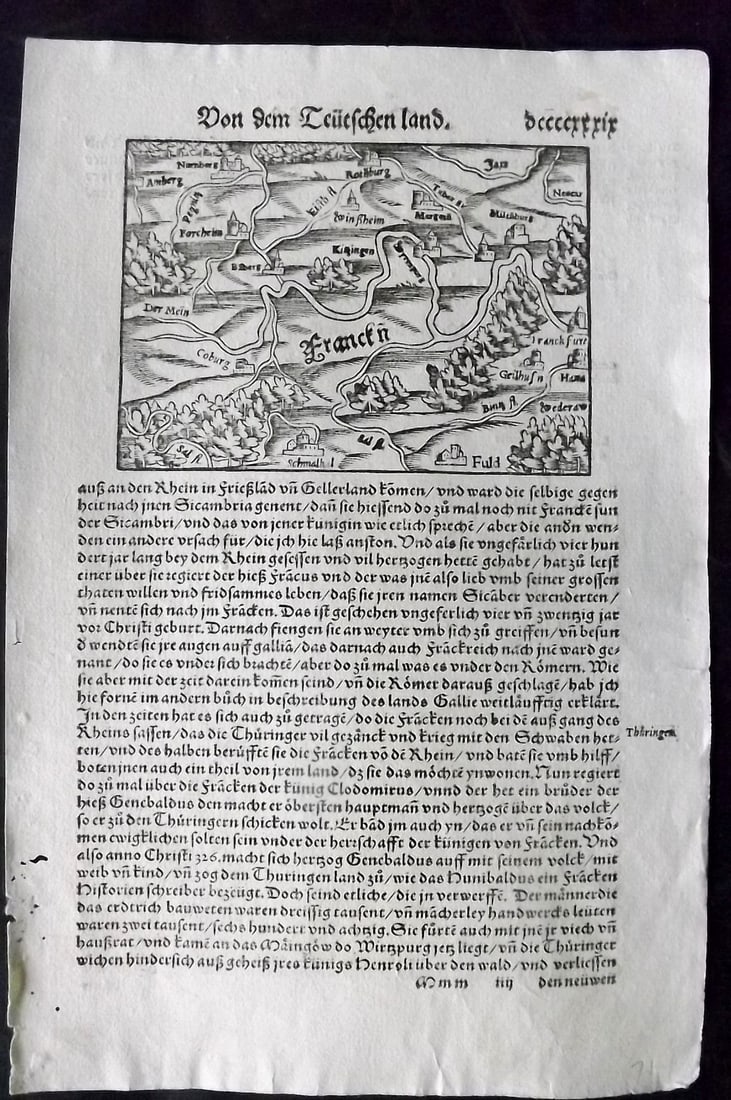 Von dem Teütschen land.
dccccxxxix
Nurnberg
Amberg
Forcheim
Rotēburg
Winßheim
Jaxt
Neccer
Miltēburg
Kitzingen
Bāberg
Der Mein
Coburg
Franckñ
Franckfurt
Geilhusn
Hana
Wederaw
Sal fl
Sal fl
Schmalkal
Fuld
auß an den Rhein in Frießlād vñ Gellerland kōmen/ vnd ward die selbige gegen
heit nach jnen Sicambria genent/ dañ sie hiessend do zů mal noch nit Franckē sun
der Sicambri/ vnd das von jener künigin wie etlich sprechē/ aber die andn wen-
den ein andere vrsach für/ die ich hie laß anston. Vnd als sie vngefärlich vier hun
dert jar lang bey dem Rhein gesessen vnd vil hertzogen hettē gehabt/ hat zů letst
einer über sie regiert der hieß Frācus vnd der was jnē also lieb vmb seiner grossen
thaten willen vnd fridsammes leben/ daß sie jren namen Sicāber verenderten/
vñ nentē sich nach jm Frācken. Das ist geschehen vngeferlich vier vñ zwentzig jar
vor Christi geburt. Darnach fiengen sie an weyter vmb sich zů greiffen/ vñ besun
d wendtē sie jre augen auff galliā/ das darnach auch Frāckreich nach jnē ward ge-
nant/ do sie es vnder sich brachtē/ aber do zů mal was es vnder den Römern. Wie
sie aber mit der zeit darein kom̄en seind/ vñ die Römer darauß geschlagē/ hab ich
hie fornē im andern bůch in beschreibung des lands Gallie weitläufftig erklärt.
In den zeiten hat es sich auch zů getragē/ do die Frācken noch bei dē auß gang des
Rheins sassen/ das die Thüringer vil gezänck vnd krieg mit den Schwaben het-
ten/ vnd des halben berüfftē sie die Frācken vō dē Rhein/ vnd batē sie vmb hilff/
boten jnen auch ein theil von jrem land/ dz sie das möchtē ynwonen. Nun regiert
do zů mal über die Frācken der künig Clodomirus/ vnnd der het ein brůder der
hieß Genebaldus den macht er öbersten hauptmañ vnd hertzogē über das volck/
so er zů den Thüringern schicken wolt. Er bād jm auch yn/ das er vñ sein nachkō-
men ewigklichen solten sein vnder der herrschafft der künigen von Frācken. Vnd
also anno Christi 326. macht sich hertzog Genebaldus auff mit seinem volck/ mit
weib vñ kind/ vñ zog dem Thuringen land zů/ wie das Hunibaldus ein Frācken
Historien schreiber bezeugt. Doch seind etliche/ die jn verwerffē. Der männer die
das erdtrich bauweten waren dreissig tausent/ vñ mācherley handwercks leüten
waren zwei tausent/ sechs hundert vnd achtzig. Sie fürtē auch mit jnē jr viech vñ
haußrat/ vnd kamē an das Māingöw do Wirtzpurg jetz liegt/ vñ die Thüringer
wichen hindersich auß geheiß jres künigs Henroli über den wald/ vnd verliessen
Thüringen
Mmm iiij den neüwen